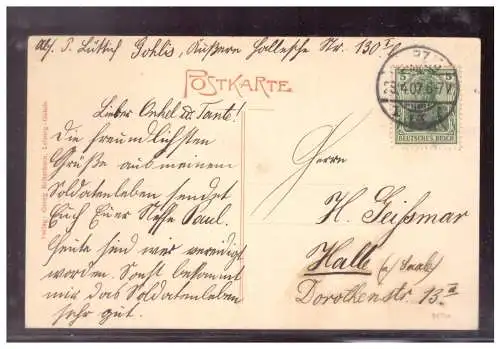 Abs. P. Lüttich Gohlis, Äußere Hallesche Str. 130 I
POSTKARTE
Lieber Onkel u. Tante!
Die freundlichsten
Grüße aus meinem
Soldatenleben sendet
Euch Euer Neffe Paul.
Heute sind wir vereidigt
worden. Sonst bekommt
mir das Soldatenleben
sehr gut.
5 5
DEUTSCHES REICH
23.4.07. 6-7 V.
Herrn
H. Geißmar
Halle (a/Saale)
Dorotheenstr. 13 II